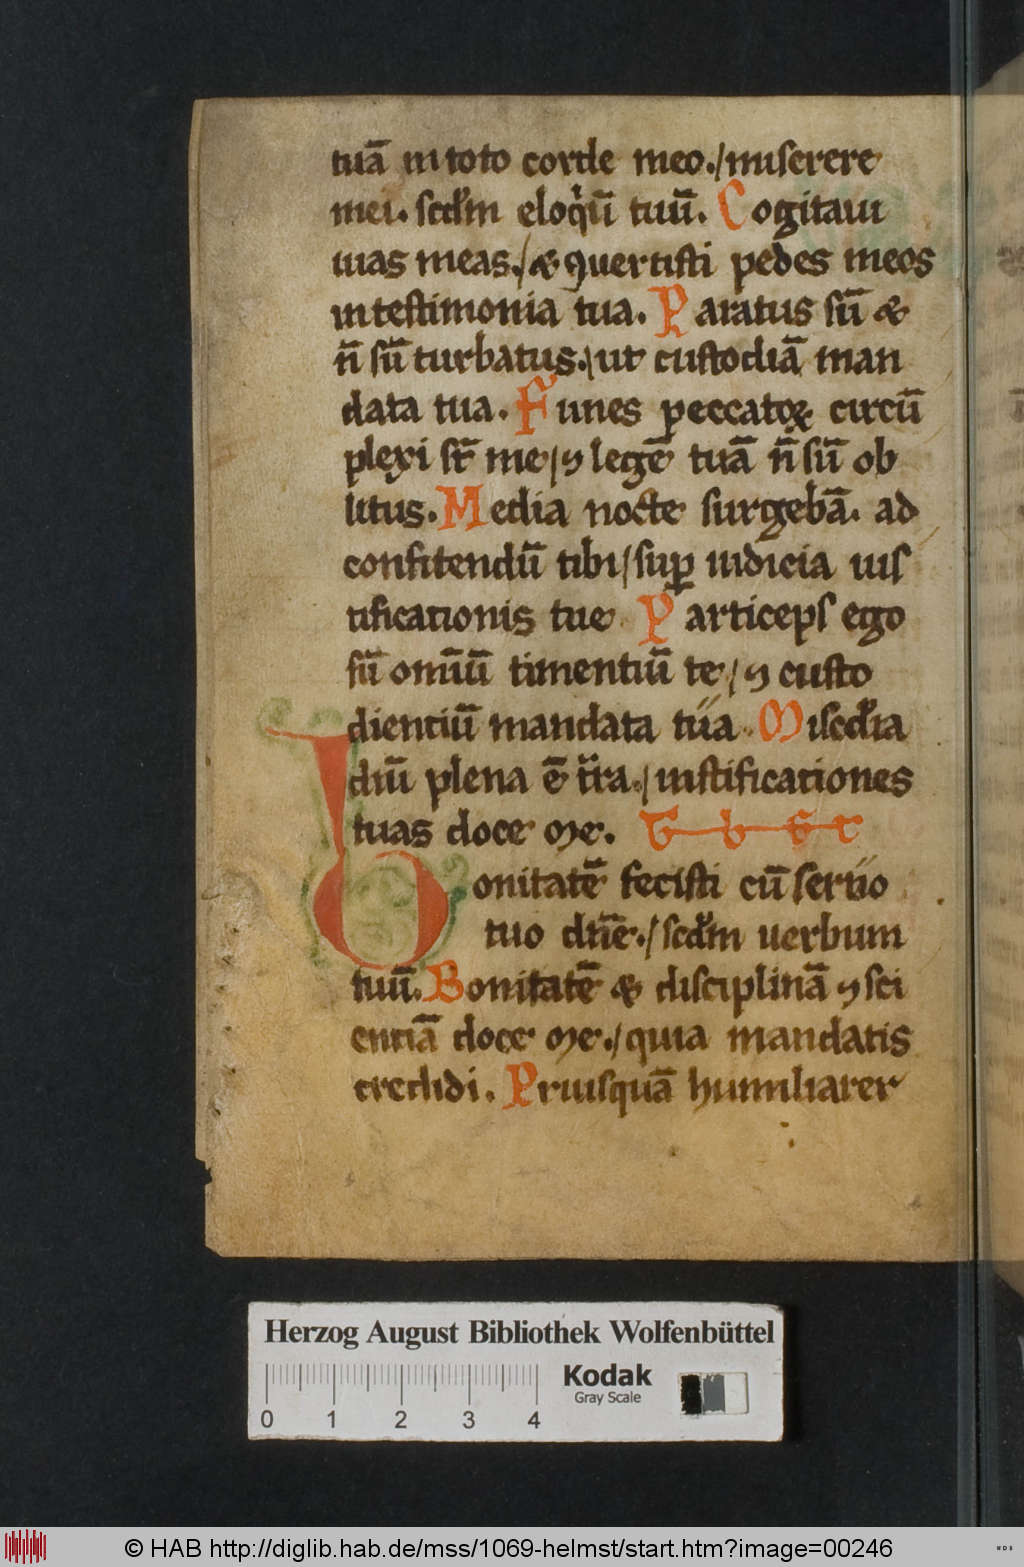 tuā in toto corde meo./miserere
mei. scd'm eloq'ū tuū. Cogitaui
uias meas./& ꝯuertisti pedes meos
in testimonia tua. Paratus sū &
n̄ sū turbatus./ut custodiā man
data tua. Funes peccatoꝝ circū
plexi st̄ me/⁊ legē tuā n̄ sū ob
litus. Media nocte surgebā. ad
confitendū tibi/sup̱ iudicia ius
tificationis tue Particeps ego
sū omīuū timentiū te/⁊ custo
dientiū mandata tua. Miscd'ia
dn̄i plena ē t̄ra./iustificationes
tuas doce me.
Bonitatē fecisti cū seruo
tuo dn̄e./scd'm uerbum
tuū. Bonitatē & disciplinā ⁊ sci
entiā doce me./quia mandatis
credidi. Priusquā humiliarer
Herzog August Bibliothek Wolfenbüttel
Kodak
Gray Scale
0 1 2 3 4
© HAB http://diglib.hab.de/mss/1069-helmst/start.htm?image=00246